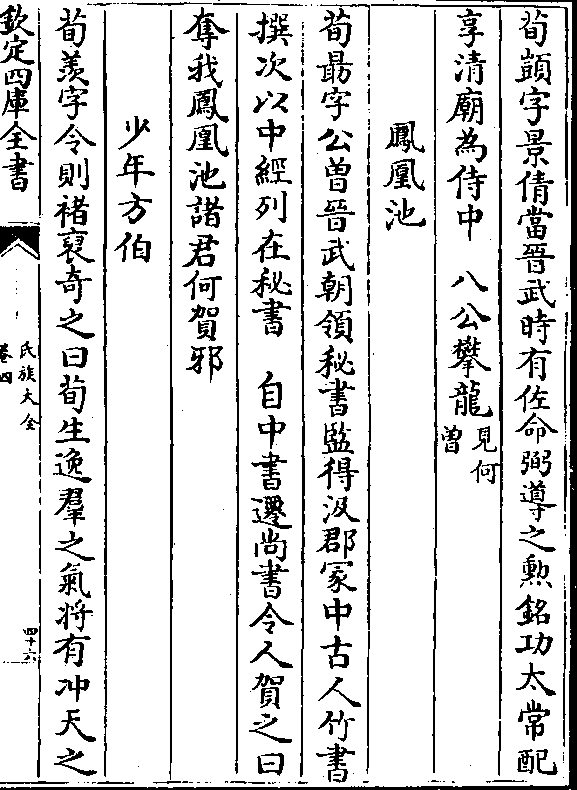 荀顗字景倩當晉武時有佐命弼導之勲銘功太常配
享清廟為侍中　八公攀龍見何曾
鳳凰池
荀勗字公曾晉武朝領秘書監得汲郡冢中古人竹書
撰次以中經列在秘書　自中書遷尚書令人賀之曰
奪我鳳凰池諸君何賀邪
少年方伯
荀羨字令則褚裒奇之曰荀生逸羣之氣將有冲天之
欽定四庫全書
氏族大全
卷四
四十六